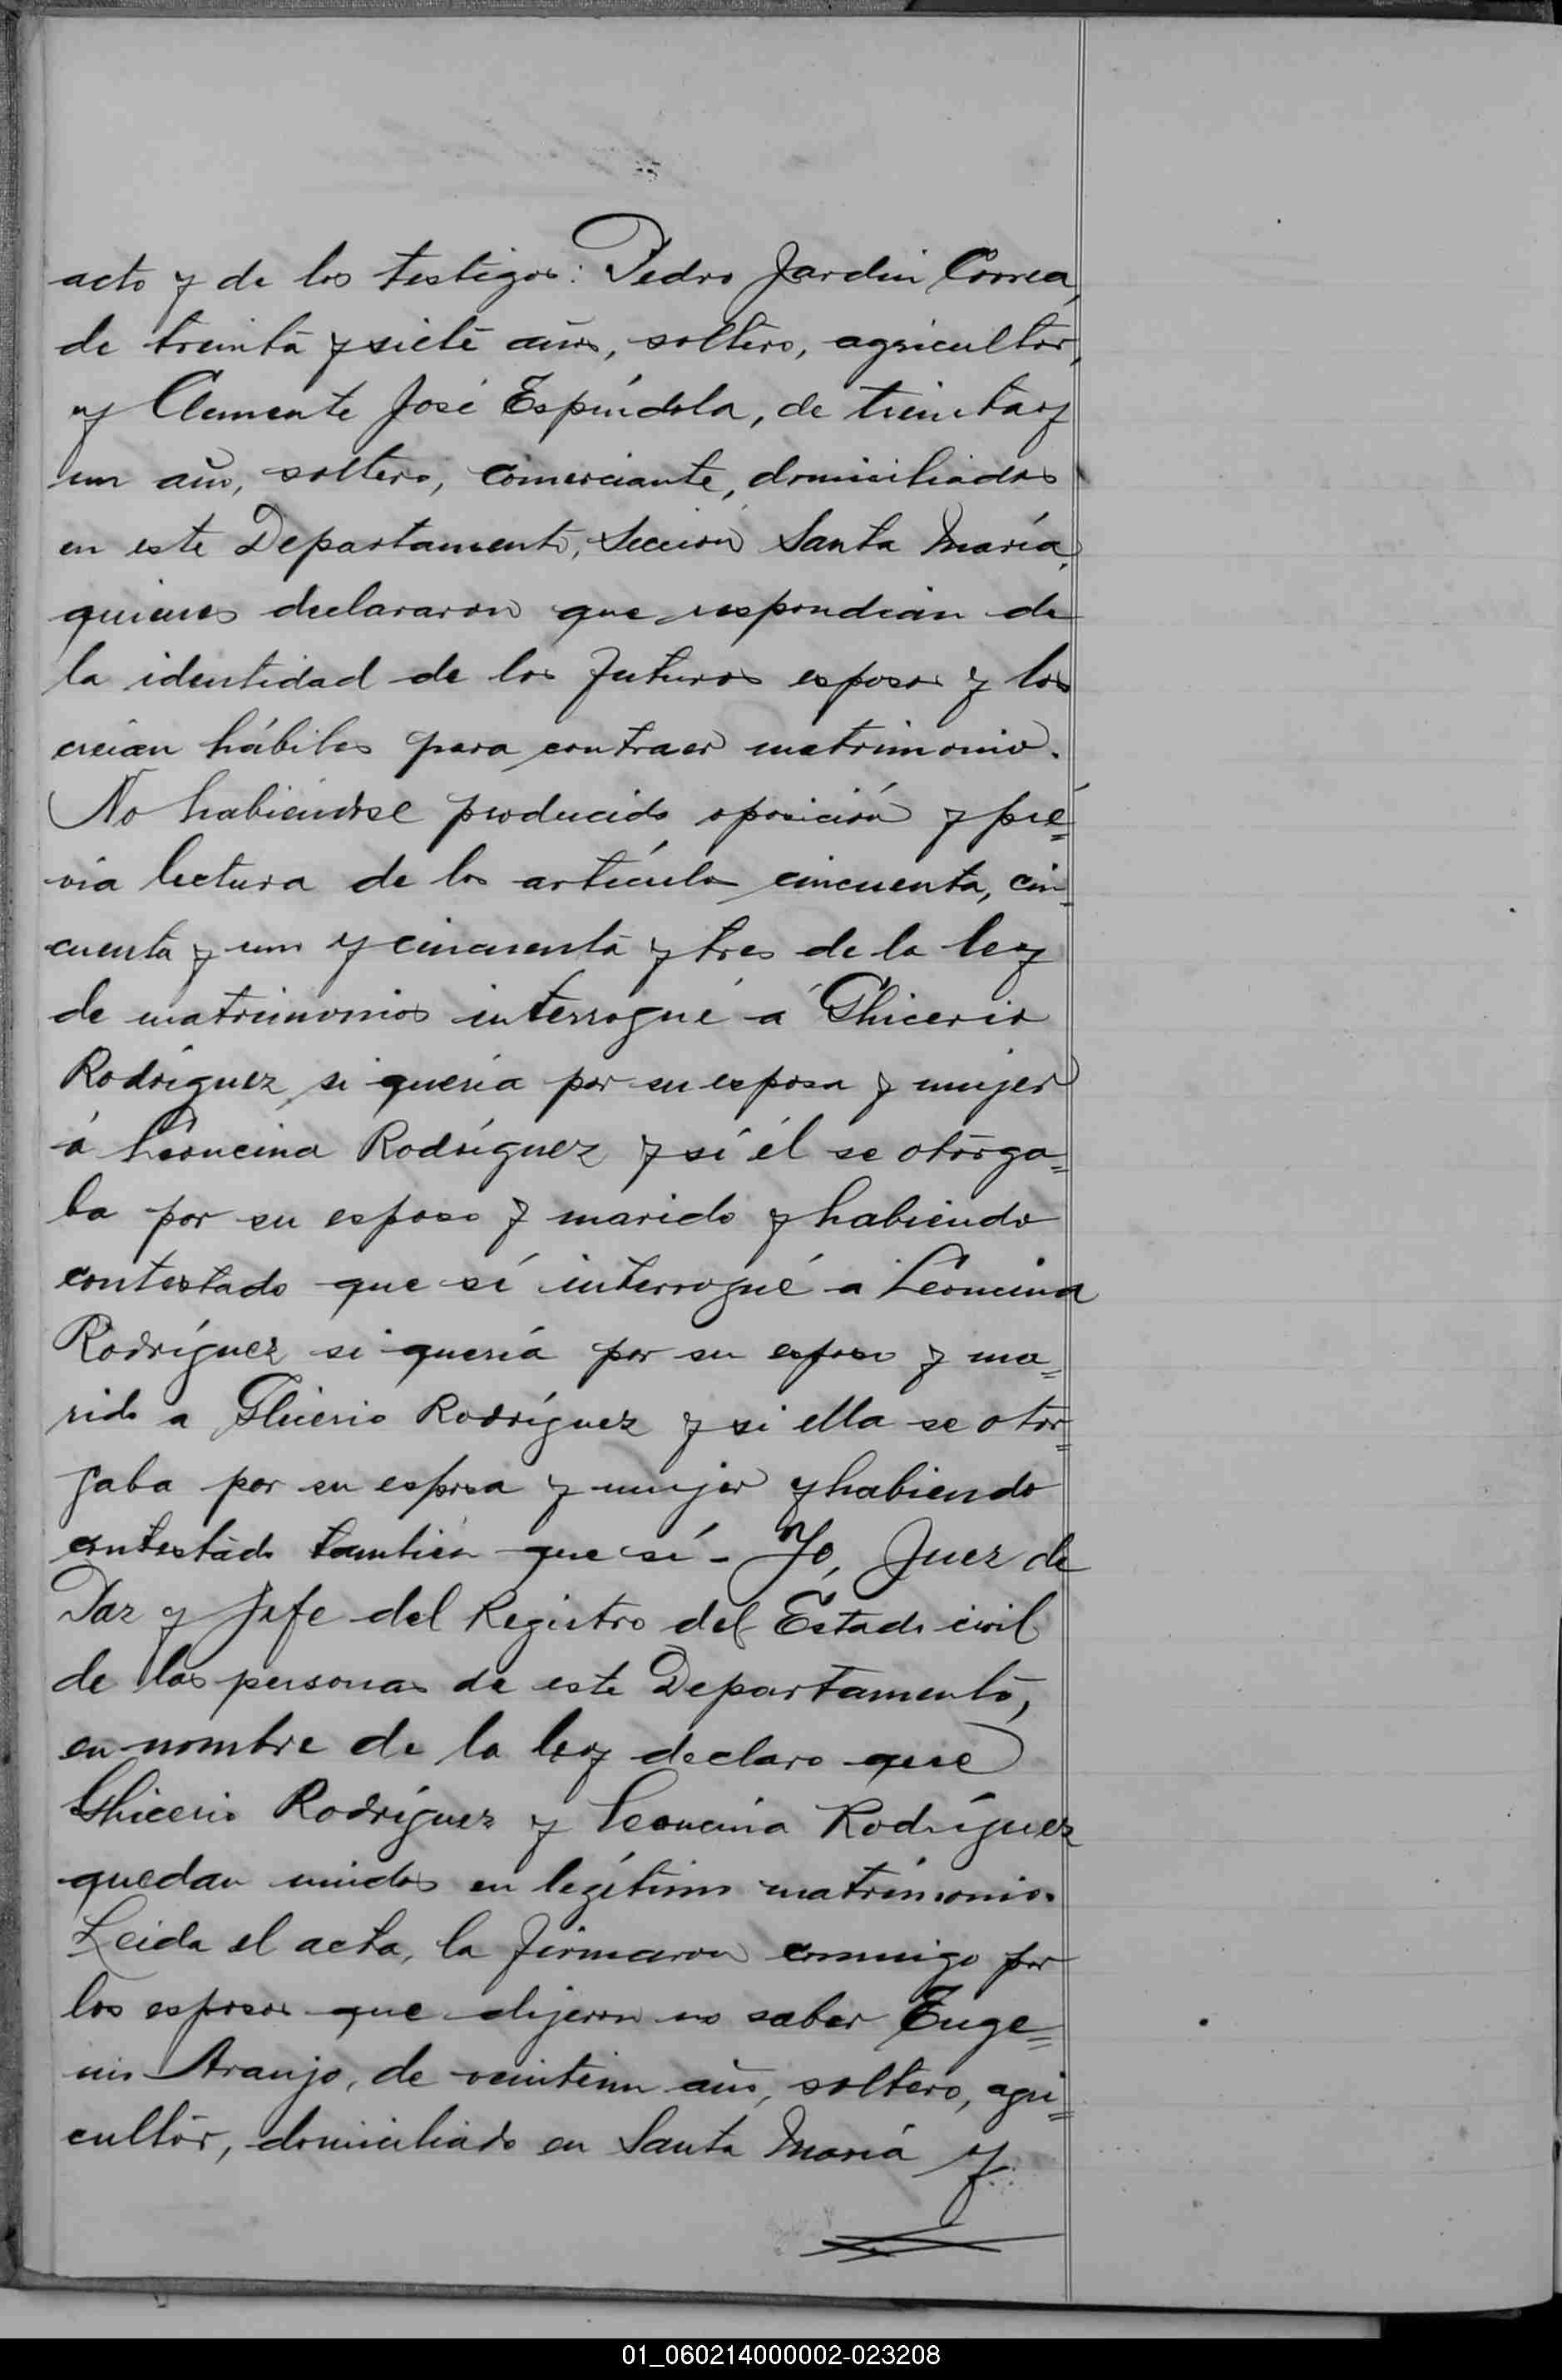 acto y de los testigos: Pedro Jardin Correa,
de treinta y siete años, soltero, agricultor,
y Clemente José Espíndola, de treinta y
un año, soltero, comerciante, domiciliados
en este Departamento, Sección Santa María,
quienes declararon que respondían de
la identidad de los futuros esposos y los
creían hábiles para contraer matrimonio.
No habiéndose producido oposición y pré=
via lectura de los artículos cincuenta, cin=
cuenta y un y cincuenta y tres de la ley
de matrimonios interrogué á Glicerio
Rodríguez si quería por su esposa y mujer
á Leoncina Rodríguez y si él se otorga=
ba por su esposo y marido y habiendo
contestado que sí interrogué a Leoncina
Rodríguez si quería por su esposo y ma=
rido a Glicerio Rodríguez y si ella se otor=
gaba por su esposa y mujer y habiendo
contestado también que sí - Yo, Juez de
Paz y Jefe del Registro del Estado civil
de las personas de este Departamento,
en nombre de la ley declaro que
Glicerio Rodríguez y Leoncina Rodríguez
quedan unidos en legítimo matrimonio.
Leida el acta, la firmaron conmigo por
los esposos que dijeron no saber Euge=
nio Araujo, de veintiun año, soltero, agri=
cultor, domiciliado en Santa María y
01_060214000002-023208